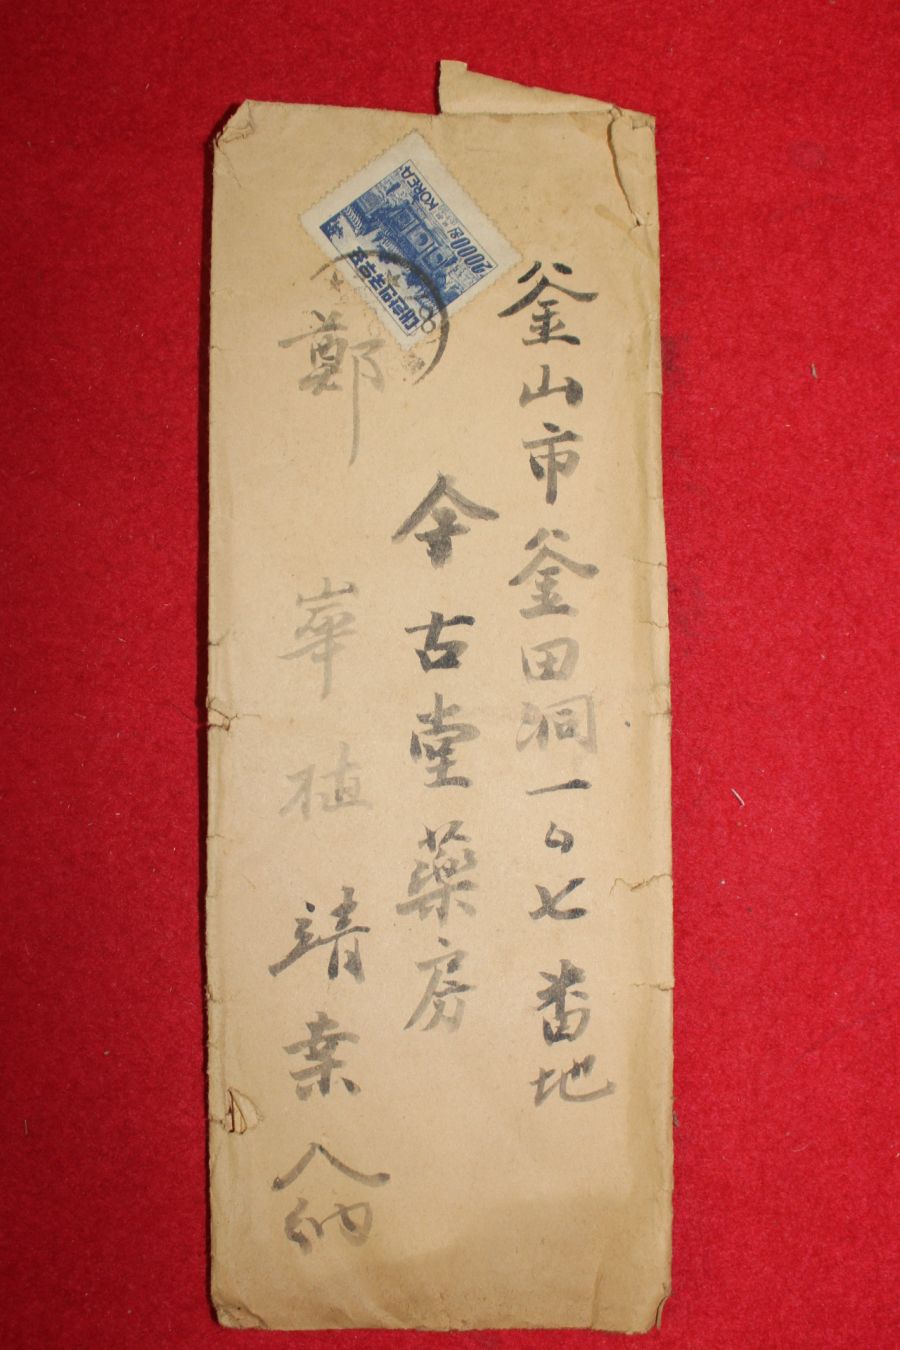 釜山市釜田洞一〇七番地
今古堂藥房
鄭崋植 靖案 入納
대한민국우표
2000원
KOREA